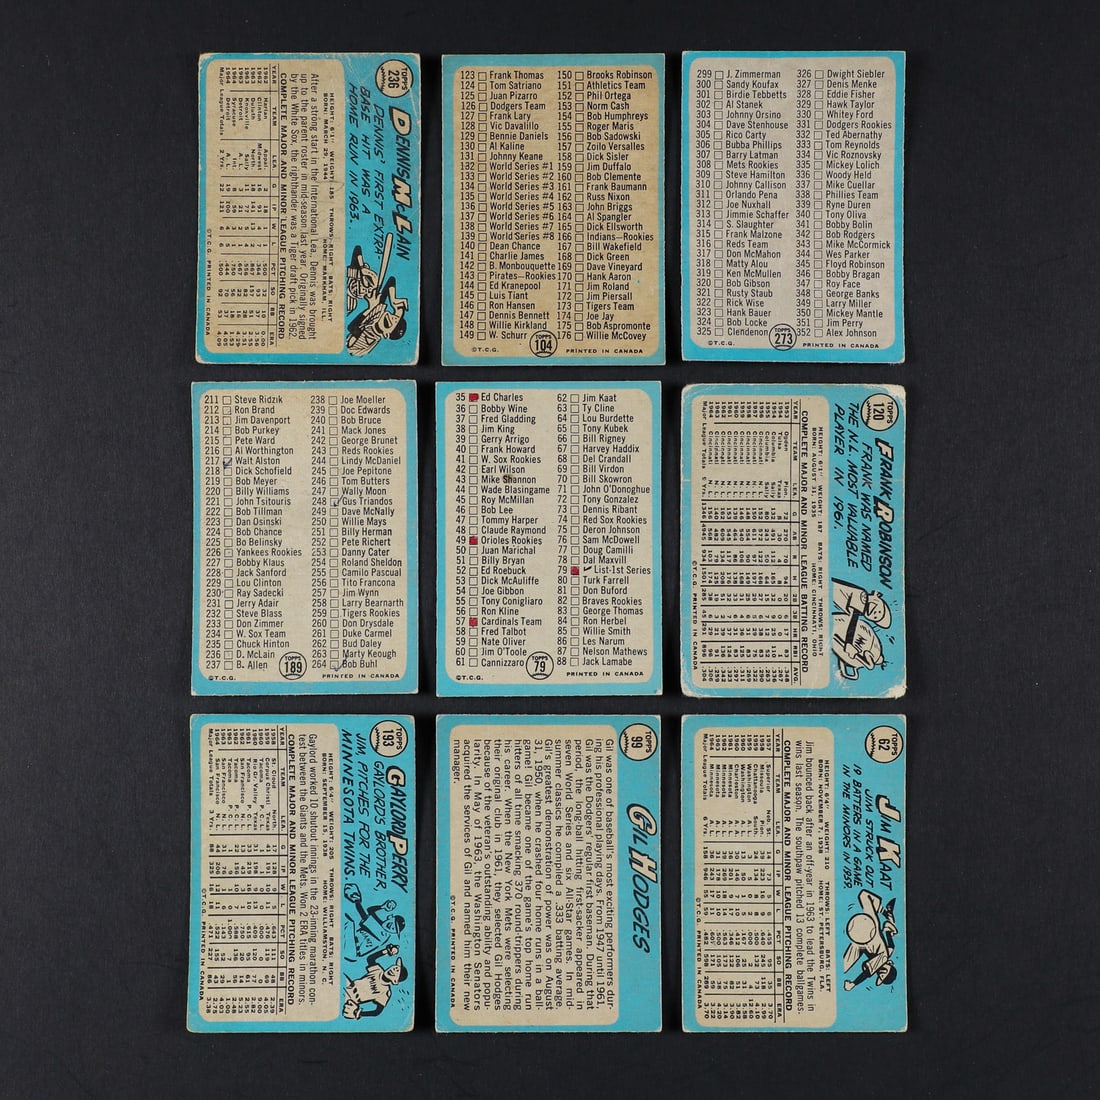 TOPPS
236
DENNIS MCLAIN
DENNIS' FIRST EXTRA
BASE HIT WAS A
HOME RUN IN 1963.
HEIGHT: 6'1" WEIGHT: 185 THROWS: RIGHT BATS: RIGHT
BORN: MARCH 29, 1944 HOME: MARKHAM, ILL.
COMPLETE MAJOR AND MINOR LEAGUE PITCHING RECORD
YEAR TEAM LEA. G IP W L PCT SO BB ERA
Major League Totals 2 Yrs.
After a strong start in the International Lea., Dennis was brought
up to the parent roster in mid-season last year. Originally signed
by the White Sox, the righthander was a Tiger draft pick in 1962.
©T.C.G. PRINTED IN CANADA
123 Frank Thomas
124 Tom Satriano
125 Juan Pizarro
126 Dodgers Team
127 Frank Lary
128 Vic Davalillo
129 Bennie Daniels
130 Al Kaline
131 Johnny Keane
132 World Series #1
133 World Series #2
134 World Series #3
135 World Series #4
136 World Series #5
137 World Series #6
138 World Series #7
139 World Series #8
140 Dean Chance
141 Charlie James
142 B. Monbouquette
143 Pirates—Rookies
144 Ed Kranepool
145 Luis Tiant
146 Ron Hansen
147 Dennis Bennett
148 Willie Kirkland
149 W. Schurr
150 Brooks Robinson
151 Athletics Team
152 Phil Ortega
153 Norm Cash
154 Bob Humphreys
155 Roger Maris
156 Bob Sadowski
157 Zoilo Versalles
158 Dick Sisler
159 Jim Duffalo
160 Bob Clemente
161 Frank Baumann
162 Russ Nixon
163 John Briggs
164 Al Spangler
165 Dick Ellsworth
166 Indians—Rookies
167 Bill Wakefield
168 Dick Green
169 Dave Vineyard
170 Hank Aaron
171 Jim Roland
172 Jim Piersall
173 Tigers Team
174 Joe Jay
175 Bob Aspromonte
176 Willie McCovey
©T.C.G. TOPPS 104 PRINTED IN CANADA
299 J. Zimmerman
300 Sandy Koufax
301 Birdie Tebbetts
302 Al Stanek
303 Johnny Orsino
304 Dave Stenhouse
305 Rico Carty
306 Bubba Phillips
307 Barry Latman
308 Mets Rookies
309 Steve Hamilton
310 Johnny Callison
311 Orlando Pena
312 Joe Nuxhall
313 Jimmie Schaffer
314 S. Slaughter
315 Frank Malzone
316 Reds Team
317 Don McMahon
318 Matty Alou
319 Ken McMullen
320 Bob Gibson
321 Rusty Staub
322 Rick Wise
323 Hank Bauer
324 Bob Locke
325 Clendenon
326 Dwight Siebler
327 Denis Menke
328 Eddie Fisher
329 Hawk Taylor
330 Whitey Ford
331 Dodgers Rookies
332 Ted Abernathy
333 Tom Reynolds
334 Vic Roznovsky
335 Mickey Lolich
336 Woody Held
337 Mike Cuellar
338 Phillies Team
339 Ryne Duren
340 Tony Oliva
341 Bobby Bolin
342 Bob Rodgers
343 Mike McCormick
344 Wes Parker
345 Floyd Robinson
346 Bobby Bragan
347 Roy Face
348 George Banks
349 Larry Miller
350 Mickey Mantle
351 Jim Perry
352 Alex Johnson
©T.C.G. TOPPS 273 PRINTED IN CANADA
211 Steve Ridzik
212 Ron Brand
213 Jim Davenport
214 Bob Purkey
215 Pete Ward
216 Al Worthington
217 Walt Alston
218 Dick Schofield
219 Bob Meyer
220 Billy Williams
221 John Tsitouris
222 Bob Tillman
223 Dan Osinski
224 Bob Chance
225 Bo Belinsky
226 Yankees Rookies
227 Bobby Klaus
228 Jack Sanford
229 Lou Clinton
230 Ray Sadecki
231 Jerry Adair
232 Steve Blass
233 Don Zimmer
234 W. Sox Team
235 Chuck Hinton
236 D. McLain
237 B. Allen
238 Joe Moeller
239 Doc Edwards
240 Bob Bruce
241 Mack Jones
242 George Brunet
243 Reds Rookies
244 Lindy McDaniel
245 Joe Pepitone
246 Tom Butters
247 Wally Moon
248 Gus Triandos
249 Dave McNally
250 Willie Mays
251 Billy Herman
252 Pete Richert
253 Danny Cater
254 Roland Sheldon
255 Camilo Pascual
256 Tito Francona
257 Jim Wynn
258 Larry Bearnarth
259 Tigers Rookies
260 Don Drysdale
261 Duke Carmel
262 Bud Daley
263 Marty Keough
264 Bob Buhl
©T.C.G. TOPPS 189 PRINTED IN CANADA
35 Ed Charles
36 Bobby Wine
37 Fred Gladding
38 Jim King
39 Gerry Arrigo
40 Frank Howard
41 W. Sox Rookies
42 Earl Wilson
43 Mike Shannon
44 Wade Blasingame
45 Roy McMillan
46 Bob Lee
47 Tommy Harper
48 Claude Raymond
49 Orioles Rookies
50 Juan Marichal
51 Billy Bryan
52 Ed Roebuck
53 Dick McAuliffe
54 Joe Gibbon
55 Tony Conigliaro
56 Ron Kline
57 Cardinals Team
58 Fred Talbot
59 Nate Oliver
60 Jim O'Toole
61 Cannizzaro
62 Jim Kaat
63 Ty Cline
64 Lou Burdette
65 Tony Kubek
66 Bill Rigney
67 Harvey Haddix
68 Del Crandall
69 Bill Virdon
70 Bill Skowron
71 John O'Donoghue
72 Tony Gonzalez
73 Dennis Ribant
74 Red Sox Rookies
75 Deron Johnson
76 Sam McDowell
77 Doug Camilli
78 Dal Maxvill
79 List-1st Series
80 Turk Farrell
81 Don Buford
82 Braves Rookies
83 George Thomas
84 Ron Herbel
85 Willie Smith
86 Les Narum
87 Nelson Mathews
88 Jack Lamabe
©T.C.G. TOPPS 79 PRINTED IN CANADA
TOPPS
120
FRANK ROBINSON
FRANK WAS NAMED
THE N.L. MOST VALUABLE
PLAYER IN 1961.
HEIGHT: 6'1" WEIGHT: 187 BATS: RIGHT THROWS: RIGHT
BORN: AUGUST 31, 1935 HOME: CINCINNATI, OHIO
COMPLETE MAJOR AND MINOR LEAGUE BATTING RECORD
YEAR TEAM LEA. G AB R H 2B 3B HR RBI AVG.
Major League Totals 9 Yrs.
©T.C.G. PRINTED IN CANADA
TOPPS
193
GAYLORD PERRY
GAYLORD'S BROTHER,
JIM, PITCHES FOR THE
MINNESOTA TWINS.
HEIGHT: 6'4" WEIGHT: 205 THROWS: RIGHT BATS: RIGHT
BORN: SEPTEMBER 15, 1938 HOME: WILLIAMSTON, N. C.
Gaylord worked 10 shutout innings in the 23-inning marathon con-
test between the Giants and the Mets. Won 2 ERA titles in minors.
COMPLETE MAJOR AND MINOR LEAGUE PITCHING RECORD
YEAR TEAM LEA. G IP W L PCT SO BB ERA
Major League Totals
©T.C.G. PRINTED IN CANADA
TOPPS
99
GIL HODGES
Gil was one of baseball's most exciting performers dur-
ing his professional playing days. From 1947 until 1961,
he was the Dodgers' regular first baseman. During that
period, the long-ball hitting first-sacker appeared in
seven World Series and six All-Star games. In mid-
summer classics he compiled a .333 batting average.
Gil's greatest demonstration of power was on August
31, 1950, when he crashed four home runs in a ball-
game! Gil became one of the game's top home run
hitters of all time smacking 370 round-trippers during
his career. When the New York Mets were selecting
their original club in 1961, they selected Gil Hodges
because of the veteran's outstanding ability and popu-
larity. In May of 1963, the Washington Senators
acquired the services of Gil and named him their new
manager.
©T.C.G. PRINTED IN CANADA
TOPPS
62
JIM KAAT
JIM STRUCK OUT
19 BATTERS IN A GAME
IN THE MINORS IN 1959.
HEIGHT: 6'4" WEIGHT: 210 THROWS: LEFT BATS: LEFT
BORN: NOVEMBER 7, 1938 HOME: ST. PETERSBURG, FLA.
Jim bounced back after an off-year in 1963 to lead the Twins in
wins last season. The southpaw pitched 13 complete ballgames.
COMPLETE MAJOR AND MINOR LEAGUE PITCHING RECORD
YEAR TEAM LEA. G IP W L PCT SO BB ERA
Major League Totals 6 Yrs.
©T.C.G. PRINTED IN CANADA